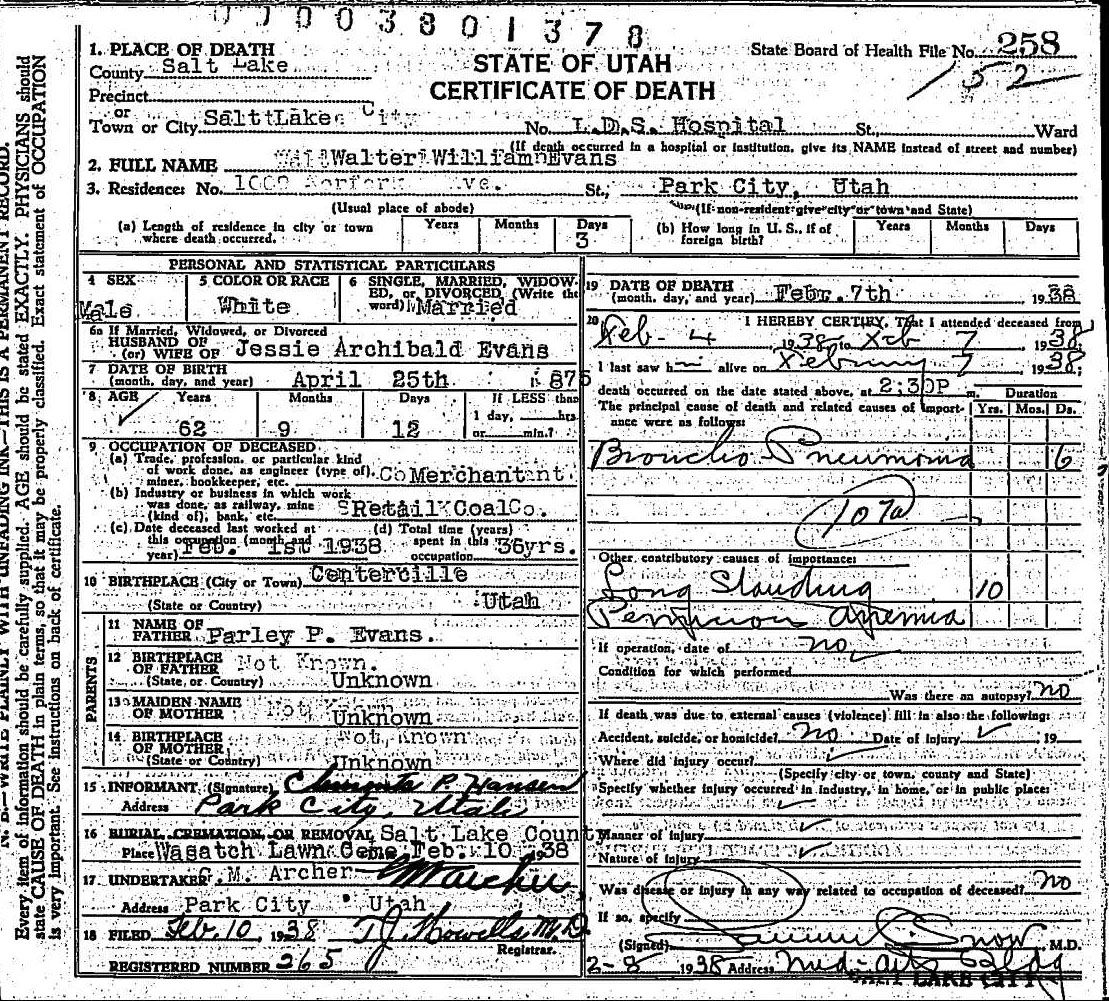 00003801378
1. PLACE OF DEATH
STATE OF UTAH
CERTIFICATE OF DEATH
State Board of Health File No. 258
152
County Salt Lake
Precinct
or
Town or City Salt Lake City No. L.D.S. Hospital St., Ward
(If death occurred in a hospital or institution, give its NAME instead of street and number)
2. FULL NAME Walter William Evans
3. Residence: No. St., Park City, Utah
(Usual place of abode) (If non-resident give city or town and State)
(a) Length of residence in city or town where death occurred. Years Months Days 3
(b) How long in U. S., if of foreign birth? Years Months Days
PERSONAL AND STATISTICAL PARTICULARS
4 SEX Male
5 COLOR OR RACE White
6 SINGLE, MARRIED, WIDOWED, or DIVORCED (Write the word) Married
6a If Married, Widowed, or Divorced
HUSBAND OF
(or) WIFE OF Jessie Archibald Evans
7 DATE OF BIRTH
(month, day, and year) April 25th 1875
8 AGE Years Months Days If LESS than
1 day, hrs.
62 9 12 or min.?
9 OCCUPATION OF DECEASED
(a) Trade, profession, or particular kind
of work done, as engineer (type of),
miner, bookkeeper, etc. Merchant
(b) Industry or business in which work
was done, as railway, mine
(kind of), bank, etc. Retail Coal Co.
(c) Date deceased last worked at
this occupation (month and
year) Feb. 1st 1938
(d) Total time (years)
spent in this
occupation 36yrs.
10 BIRTHPLACE (City or Town) Centerville
(State or Country) Utah
PARENTS
11 NAME OF
FATHER Parley P. Evans.
12 BIRTHPLACE
OF FATHER Not Known.
(State, or Country) Unknown
13 MAIDEN NAME
OF MOTHER Not Known
Unknown
14 BIRTHPLACE
OF MOTHER Not Known
(State or Country) Unknown
15 INFORMANT (Signature) P. Hansen
Address Park City, Utah
16 BURIAL, CREMATION, OR REMOVAL Salt Lake County
Place Wasatch Lawn Ceme Feb. 10 1938
17 UNDERTAKER C.M. Archer CM Archer
Address Park City Utah
18 FILED Feb. 10, 1938 T.J. Howells M.D.
Registrar.
REGISTERED NUMBER 265
19 DATE OF DEATH
(month, day, and year) Febr. 7th 1938
20 I HEREBY CERTIFY, That I attended deceased from
Feb - 4, 1938 to Feb 7 1938
I last saw h alive on February 7 1938;
death occurred on the date stated above, at 2:30P m.
The principal cause of death and related causes of importance were as follows: Duration
Yrs. Mos. Ds.
Broncho Pneumonia 6
107a
Other contributory causes of importance:
Long Standing 10
Pernicious Anemia
If operation, date of no
Condition for which performed
Was there an autopsy? no
If death was due to external causes (violence) fill in also the following:
Accident, suicide, or homicide? no Date of injury 19
Where did injury occur?
(Specify city or town, county and State)
Specify whether injury occurred in industry, in home, or in public place:
Manner of injury
Nature of injury
Was disease or injury in any way related to occupation of deceased? no
If so, specify
(Signed) Snow M.D.
2-8 1938 Address Med-Arts Bldg
SALT LAKE CITY
N. B.—WRITE PLAINLY WITH UNFADING INK—THIS IS A PERMANENT RECORD.
Every item of information should be carefully supplied. AGE should be stated EXACTLY. PHYSICIANS should
state CAUSE OF DEATH in plain terms, so that it may be properly classified. Exact statement of OCCUPATION
is very important. See instructions on back of certificate.